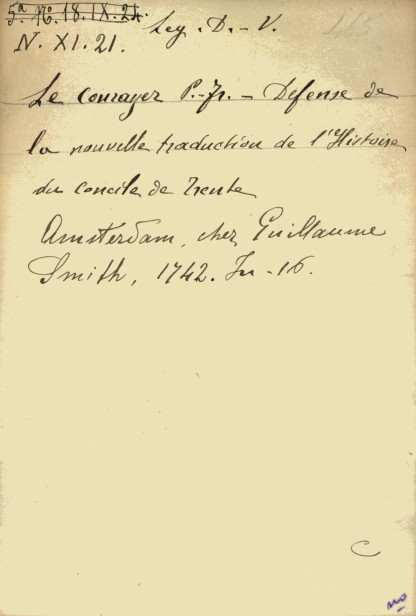 5ª Nº. 18. IX. 21.
N. XI. 21.
Leg. D. - V.
Le Courayer P.-Fr. - Defense de
la nouvelle traduction de l'Histoire
du concile de Trente
Amsterdam, chez Guillaume
Smith, 1742. In - 16.
C
no